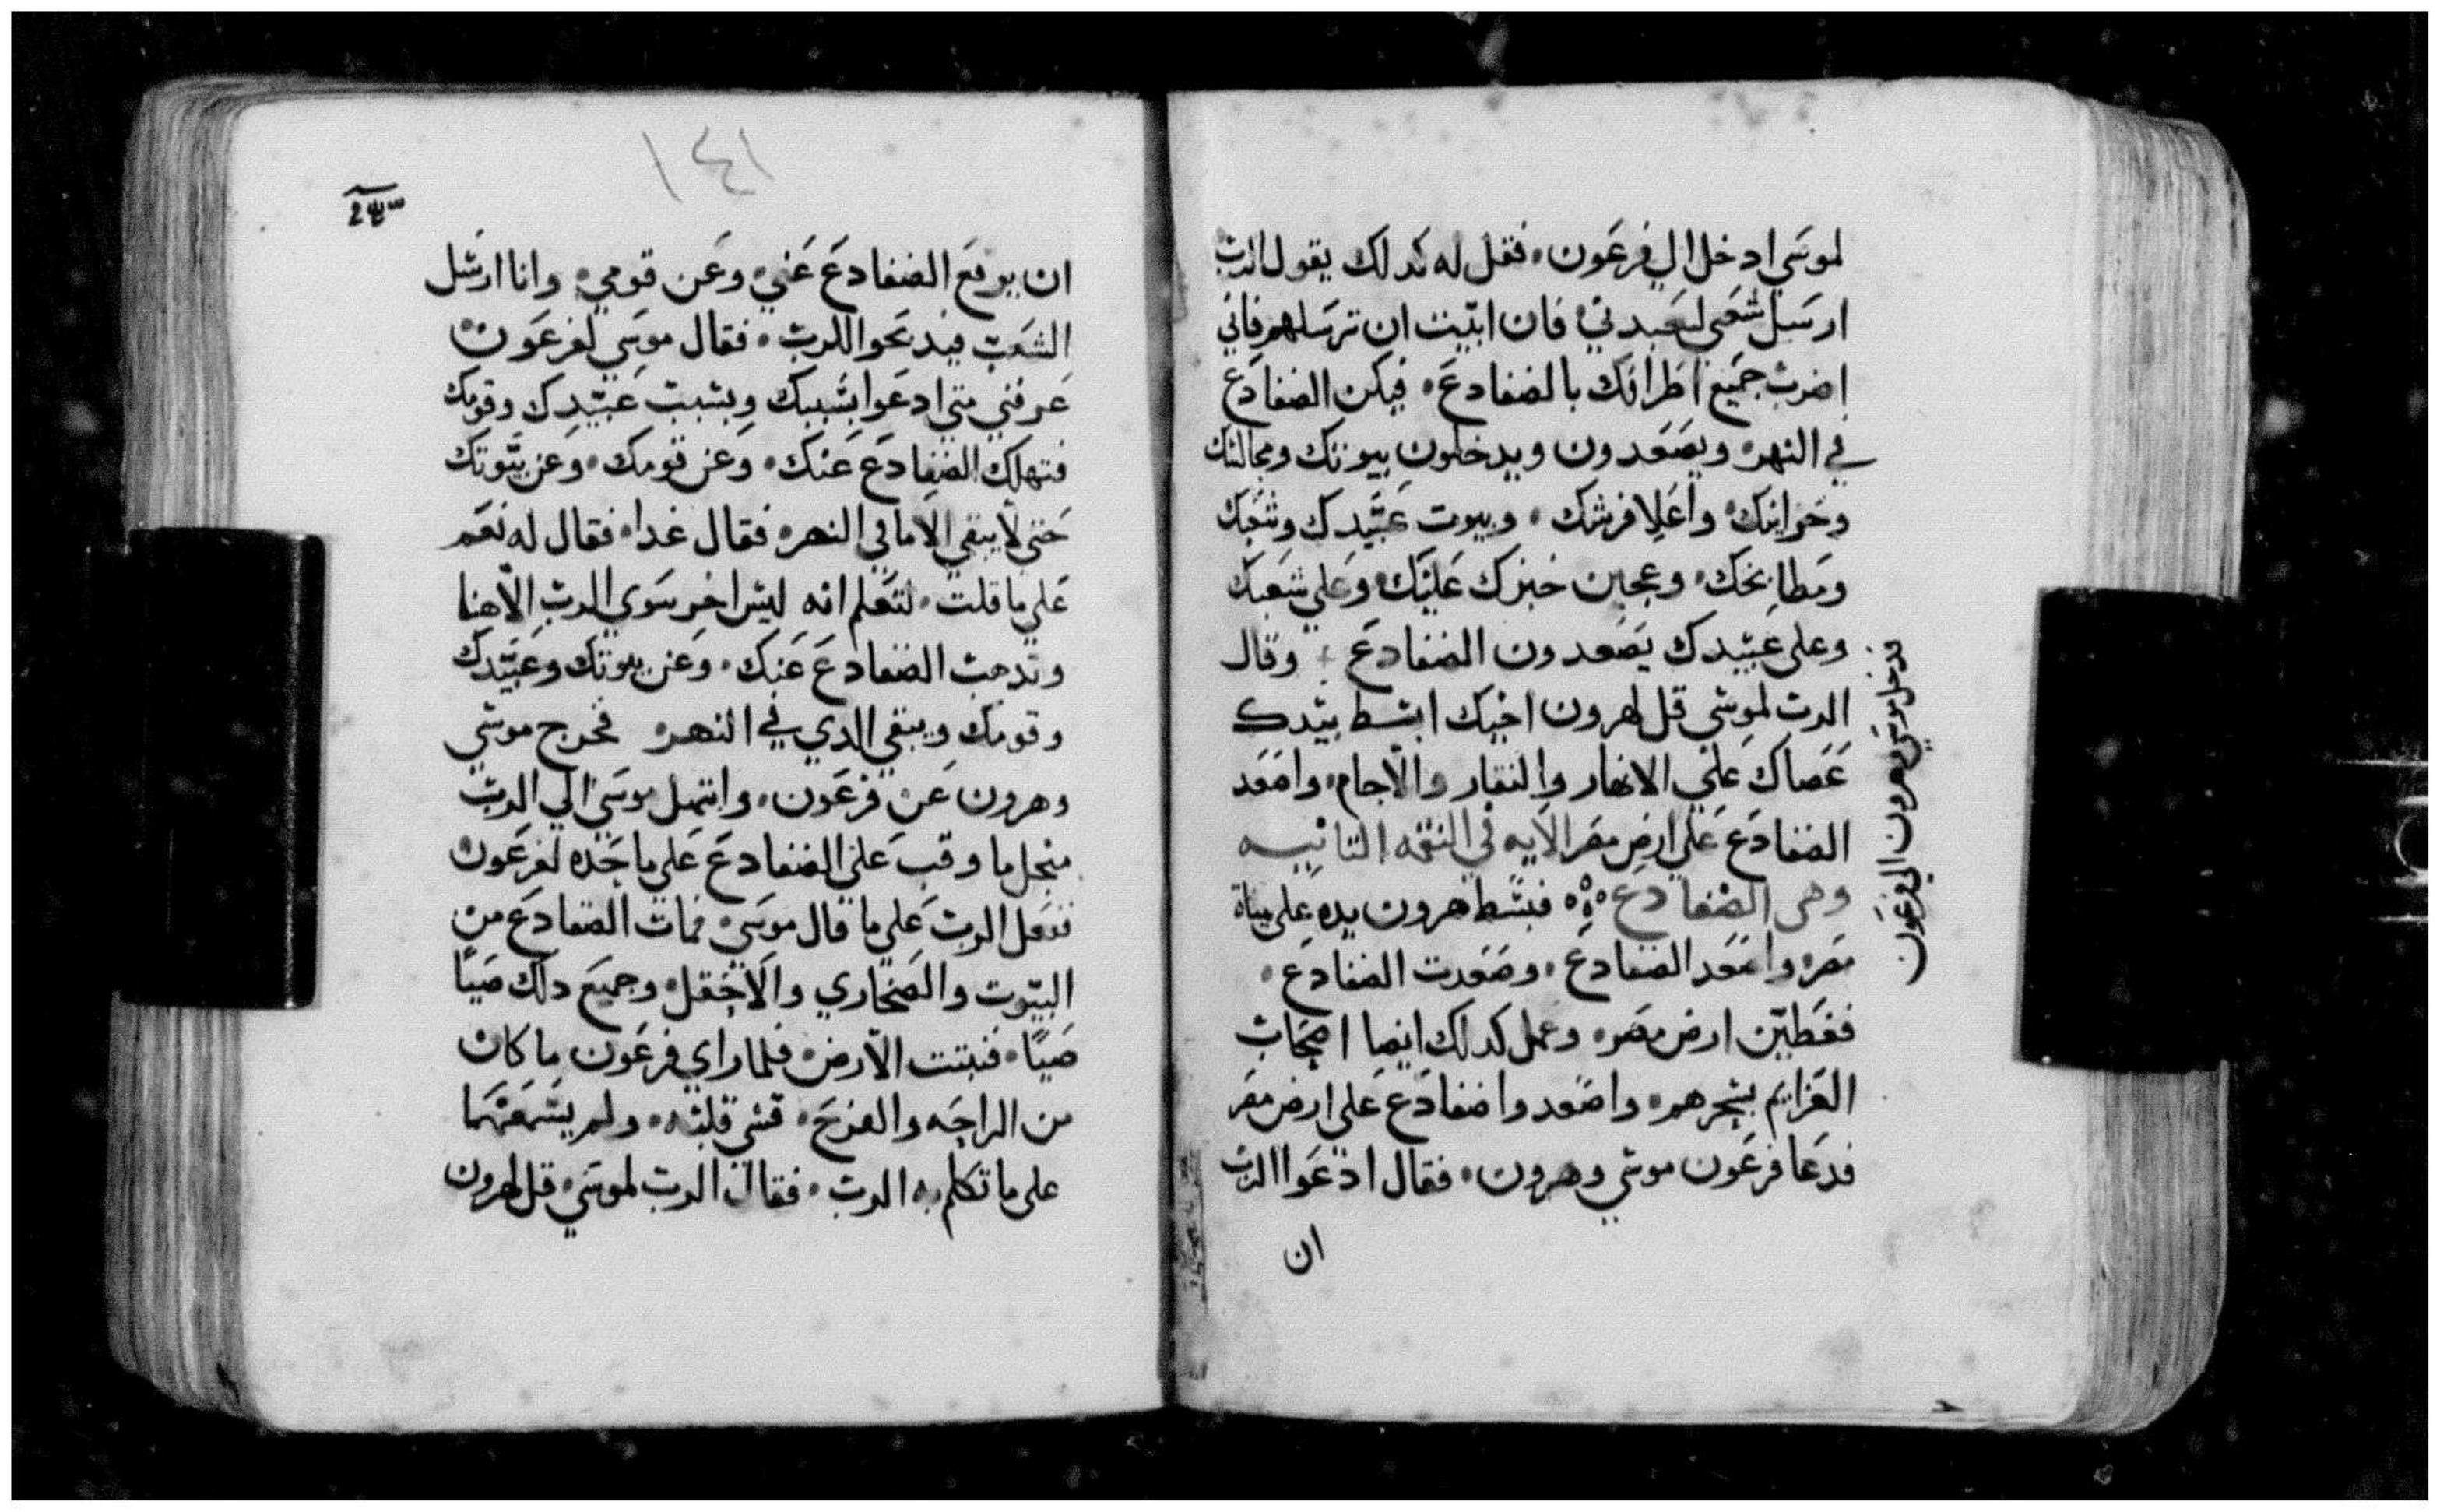 لموسي ادخل الي فرعون، فقل له كدلك يقول الرب
ارسل شعبي ليعبدني، فان ابيت ان ترسلهم فاني
اضرب جميع اطرافك بالضفادع، فيكن الضفادع
في النهر، ويصعدون ويدخلون بيوتك ومجالسك
وخزاينك، واعلا فرشك، وبيوت عبيدك وشعبك
ومطابخك، وعجين خبزك عليك، وعلي شعبك
وعلي عبيدك يصعدون الضفادع، وقال
الرب لموسي قل لهرون اخيك ابسط بيدك
عصاك علي الانهار والنقار والاجام، واصعد
الضفادع علي ارض مصر الايه في النقمه التانيه
وهى الضفادع فبسط هرون يده على مياة
مصر، واصعد الضفادع، وصعدت الضفادع،
فغطين ارض مصر، وعمل كدالك ايضا اصحاب
العزايم بسحرهم، واصعدوا ضفادع على ارض مصر
فدعا فرعون موسي وهرون، فقال ادعوا الرب
ان
فدخل موسي وهرون الي فرعون
١٤١
ان يرفع الضفادع عني، وعن قومي، وانا ارسل
الشعب فيدبحوا للرب، فقال موسي لفرعون
عرفني متي ادعوا بسببك وبسبب عبيدك وقومك
فتهلك الضفادع عنك، وعن قومك، وعن بيوتك
حتي لا يبقي الا ما في النهر، فقال غدا، فقال له نعم
علي ما قلت، لتعلم انه ليس اخر سوي الرب الاهنا
وتدهب الضفادع عنك، وعن بيوتك وعبيدك
وقومك ويبقي الدي في النهر فخرج موسي
وهرون عن فرعون، وابتهل موسي الي الرب
منجل ما وقب علي الضفادع علي ما حده لفرعون
ففعل الرب علي ما قال موسي، فمات الضفادع من
البيوت والصحاري والاحقل، وجميع دلك صيبا
صيبا، فنتنت الارض، فلما راي فرعون ما كان
من الراحه والفرح، قسي قلبه، ولم يسمعهما
على ما تكلم به الرب، فقال الرب لموسي، قل لهرون